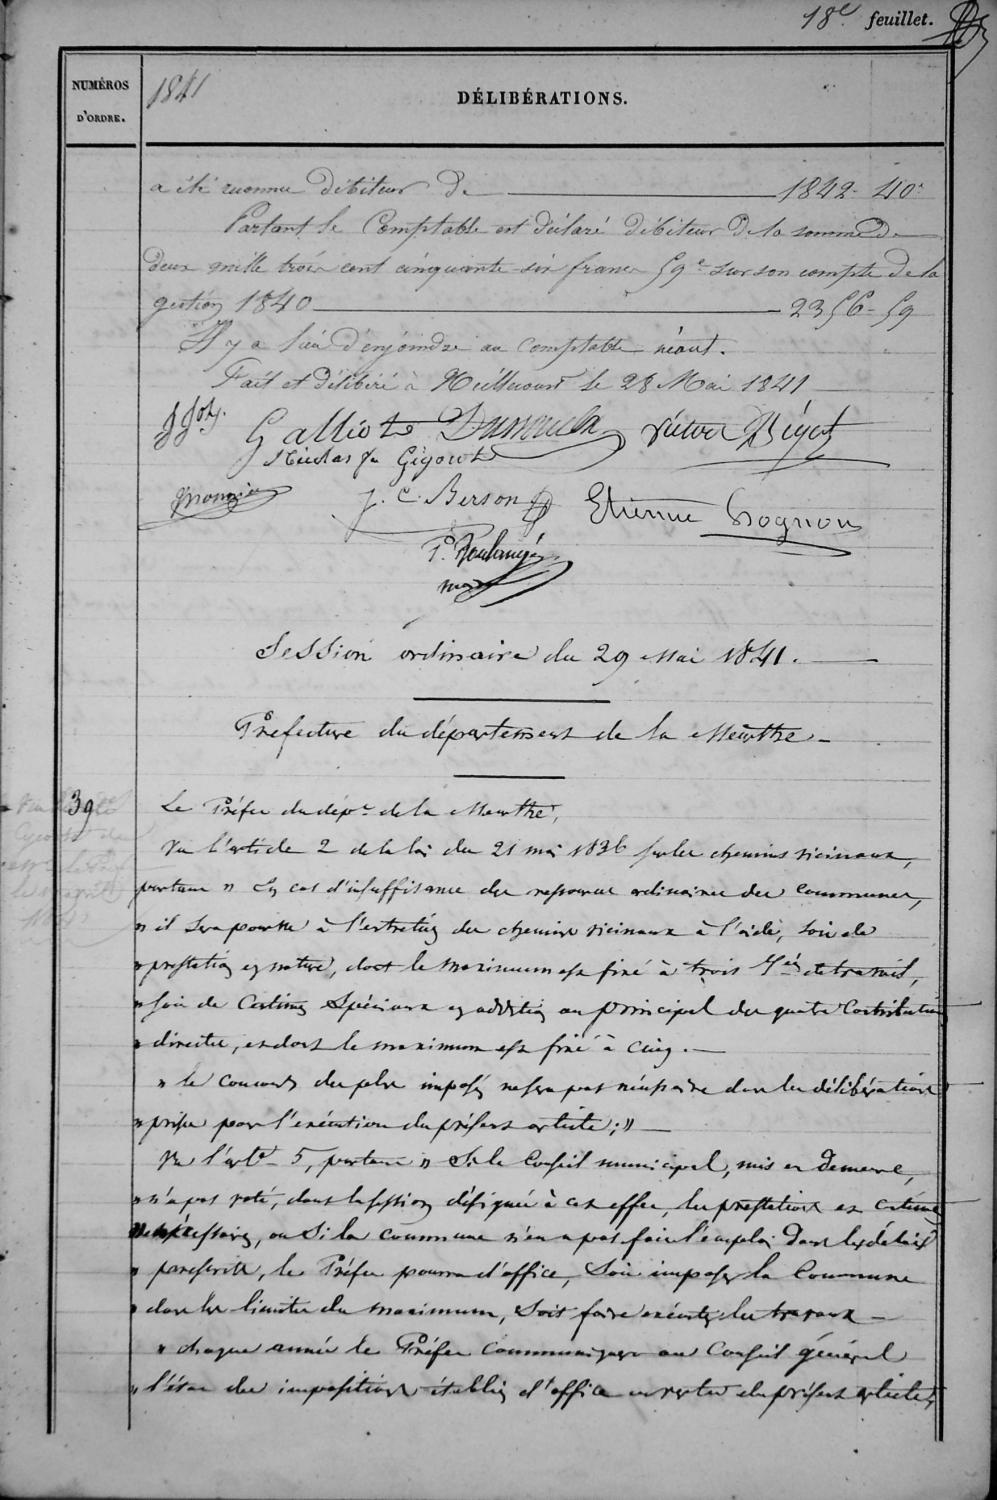 18e feuillet.
NUMÉROS
D'ORDRE.
1841
DÉLIBÉRATIONS.
a été reconnu débiteur de 1842 - 40c
Partant le Comptable est déclaré débiteur de la somme de
deux mille trois cent cinquante-six francs 59c sur son compte de la
gestion 1840 2356 - 59
Il y a lieu d'enjoindre au comptable néant.
Fait et délibéré à le 28 Mai 1841
Galliot Victor Bigot
Nicolas fx Gigout
J. C. Berson Etienne Grognon
P. Boulangé
Session ordinaire du 29 Mai 1841.
Préfecture du département de la Meurthe
39 Le Préfet du dépt de la Meurthe,
Vu l'article 2 de la loi du 21 mai 1836 sur les chemins vicinaux,
portant » En cas d'insuffisance des ressources ordinaires des communes,
» il sera pourvu à l'entretien des chemins vicinaux à l'aide, soit de
» prestation en nature, dont le maximum est fixé à trois jées de travail,
» soit de Centimes Spéciaux en addition au principal des quatre Contributions
» directes, et dont le maximum est fixé à cinq.
» le concours des plus imposés ne sera pas nécessaire dans les délibérations
» prises pour l'exécution du présent article; »
Vu l'artle 5, portant » Si le Conseil municipal, mis en demeure,
» n'a pas voté, dans la session désignée à cet effet, les prestations et centimes
» nécessaires, ou Si la commune n'en a pas fait l'emploi dans les délais
» prescrits, le Préfet pourra d'office, Soit imposer la Commune
» dans les limites du maximum, soit faire exécuter les travaux
» chaque année le Préfet communiquera au Conseil général
» l'état des impositions établies d'office en vertu du présent article »